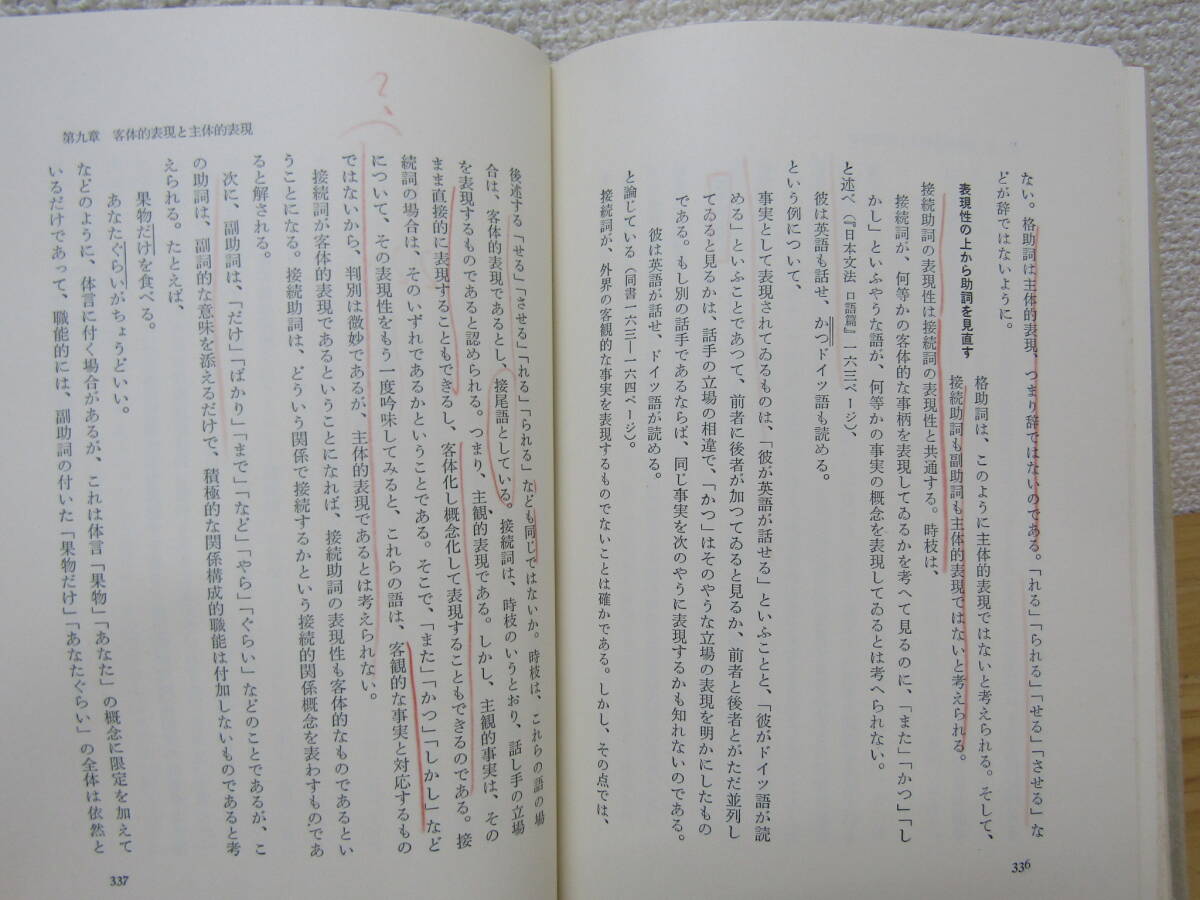 ない。格助詞は主体的表現、つまり辞ではないのである。「れる」「られる」「せる」「させる」な
どが辞ではないように。
表現性の上から助詞を見直す
格助詞は、このように主体的表現ではないと考えられる。そして、
接続助詞も副助詞も主体的表現ではないと考えられる。
接続助詞の表現性は接続詞の表現性と共通する。時枝は、
接続詞が、何等かの客体的な事柄を表現してゐるかを考へて見るのに、「また」「かつ」「し
かし」といふやうな語が、何等かの事実の概念を表現してゐるとは考へられない。
と述べ(『日本文法 口語篇』一六三ページ)、
彼は英語も話せ、かつドイツ語も読める。
という例について、
事実として表現されてゐるものは、「彼が英語が話せる」といふことと、「彼がドイツ語が読
める」といふことであつて、前者に後者が加つてゐると見るか、前者と後者とがただ並列し
てゐると見るかは、話手の立場の相違で、「かつ」はそのやうな立場の表現を明かにしたもの
である。もし別の話手であるならば、同じ事実を次のやうに表現するかも知れないのである。
彼は英語が話せ、ドイツ語が読める。
と論じている(同書一六三—一六四ページ)。
接続詞が、外界の客観的な事実を表現するものでないことは確かである。しかし、その点では、
336
第九章 客体的表現と主体的表現
後述する「せる」「させる」「れる」「られる」なども同じではないか。時枝は、これらの語の場
合は、客体的表現であるとし、接尾語としている。接続詞は、時枝のいうとおり、話し手の立場
を表現するものであると認められる。つまり、主観的表現である。しかし、主観的事実は、その
まま直接的に表現することもできるし、客体化し概念化して表現することもできるのである。接
続詞の場合は、そのいずれであるかということである。そこで、「また」「かつ」「しかし」など
について、その表現性をもう一度吟味してみると、これらの語は、客観的な事実と対応するもの
ではないから、判別は微妙であるが、主体的表現であるとは考えられない。
接続詞が客体的表現であるということになれば、接続助詞の表現性も客体的なものであるとい
うことになる。接続助詞は、どういう関係で接続するかという接続的関係概念を表わすものであ
ると解される。
次に、副助詞は、「だけ」「ばかり」「まで」「など」「やら」「ぐらい」などのことであるが、こ
の助詞は、副詞的な意味を添えるだけで、積極的な関係構成的職能は付加しないものであると考
えられる。たとえば、
果物だけを食べる。
あなたぐらいがちょうどいい。
などのように、体言に付く場合があるが、これは体言「果物」「あなた」の概念に限定を加えて
いるだけであって、職能的には、副助詞の付いた「果物だけ」「あなたぐらい」の全体は依然と
337